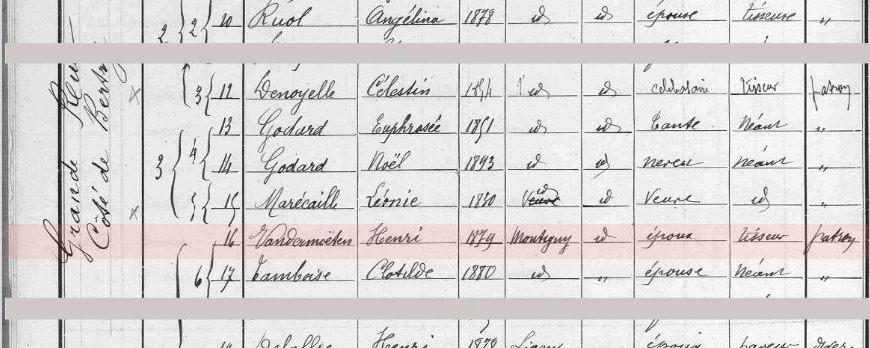 Grande Rue
Côté de Bertr
2 2 10 Ruol Angélina 1878 id id épouse tisseuse "
3 12 Denoyelle Célestin 1854 id id célibataire tisseur patron
13 Godard Euphrasée 1851 id id Tante Néant "
3 4 14 Godard Noël 1893 id id neveu néant "
5 15 Marécaille Léonie 1830 Veuve id id Veuve id "
16 Vandermoëten Henri 1879 Montigny id époux tisseur patron
6 17 Tamboise Clotilde 1880 id " épouse Néant "
Henri 1878 époux